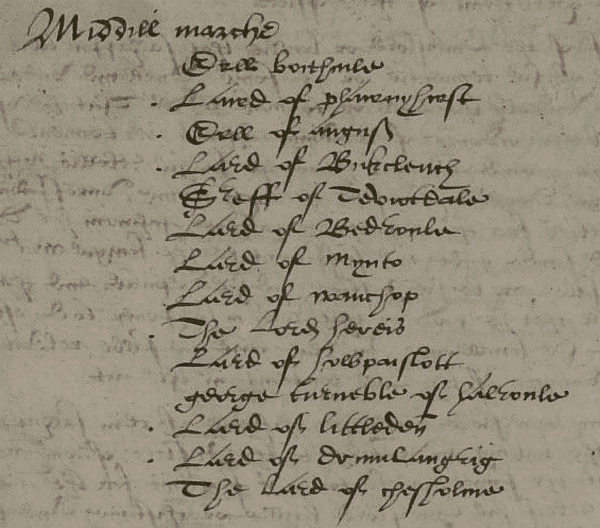 Middill marche
Erll boithuile
Laird of pharnyhirst
Erll of anguß
Lard of Bukcleuch
Shreff of Teviotdale
Lard of Bedroule
Lard of mynto
Lard of wauchop
The Lord hereis
Lard of howpaislott
george turneble of halroule
Lard of littleden
Lard of drumlangrig
The Lard of chesholme